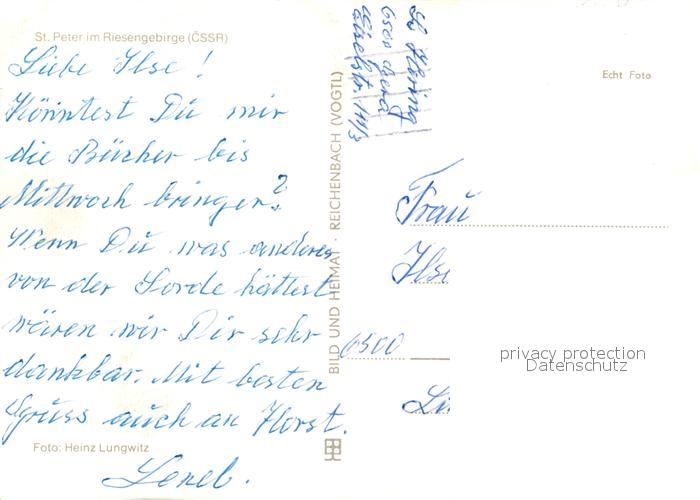 St. Peter im Riesengebirge (ČSSR)
Liebe Ilse!
Könntest Du mir
die Bücher bis
Mittwoch bringen?
Wenn Du was anderes
von der Sorde hättest
wären wir Dir sehr
dankbar. Mit besten
Gruss auch an Horst.
Foto: Heinz Lungwitz
BILD UND HEIMAT · REICHENBACH (VOGTL)
Hering
6500 Gera
Echt Foto
Frau
Ilse
6500
privacy protection
Datenschutz